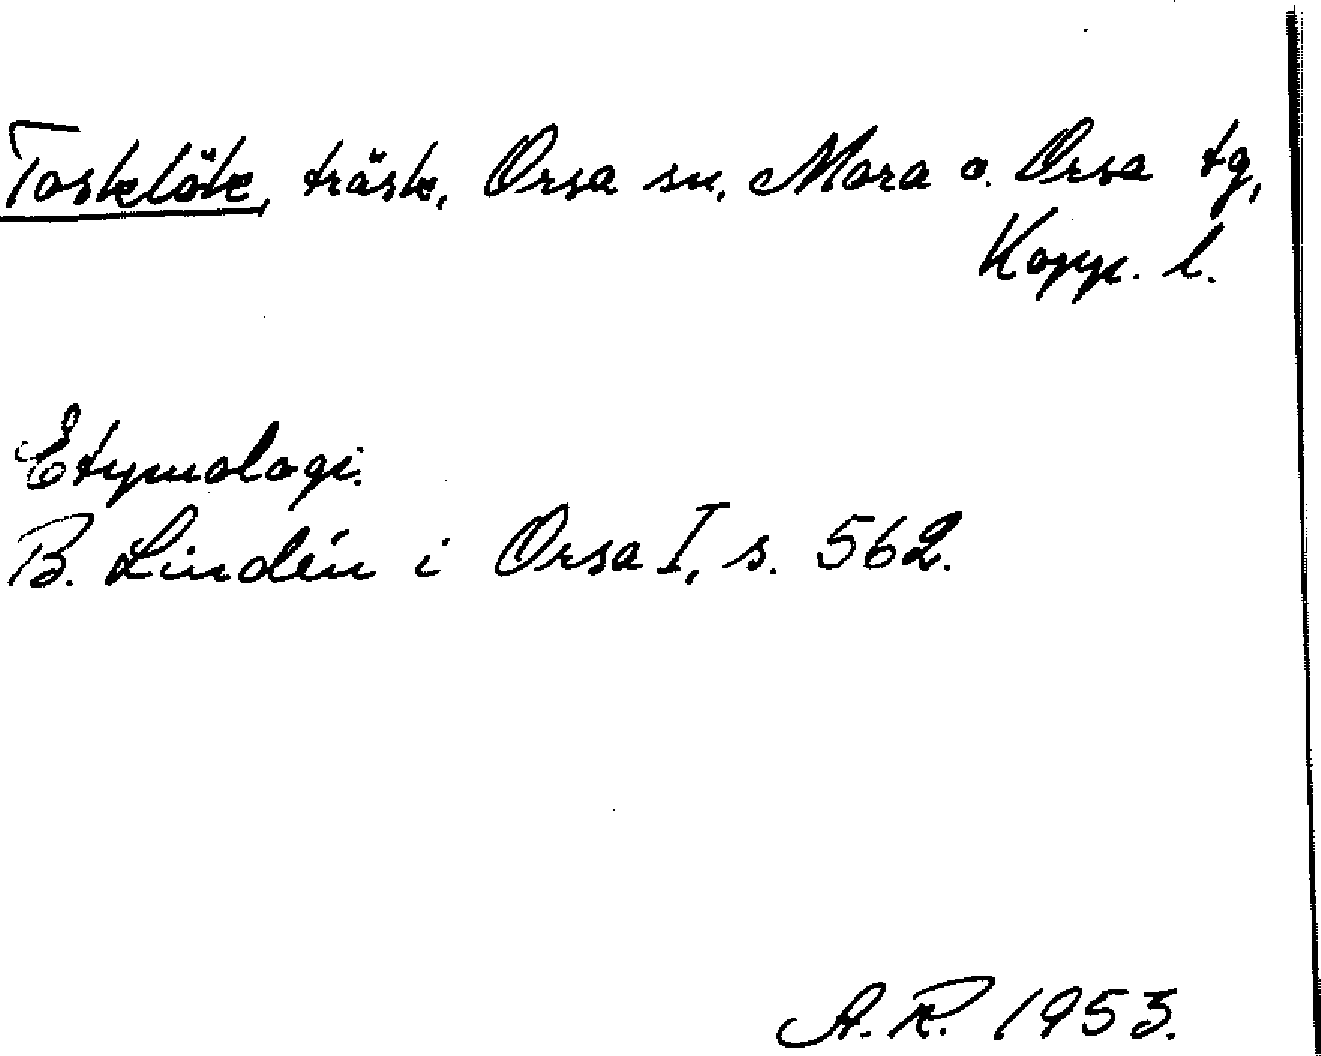 Tosklök, träsk, Orsa sn, Mora o. Orsa tg,
Kopp. l.
Etymologi.
B. Lindén i Orsa I, s. 562.
A.R. 1953.